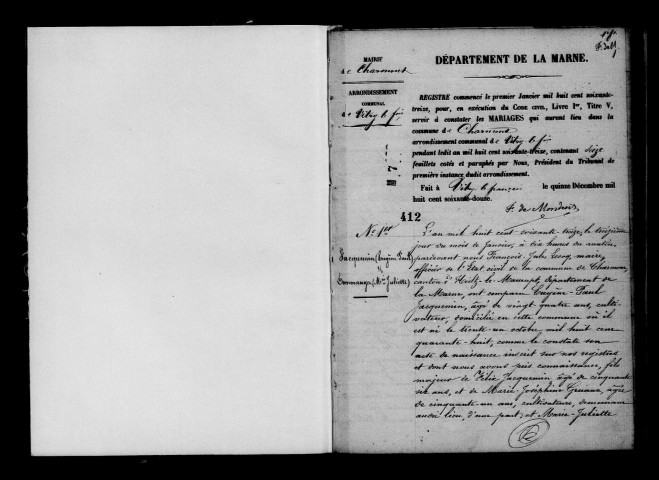 DÉPARTEMENT DE LA MARNE.
MAIRIE
de Charmont
ARRONDISSEMENT
COMMUNAL
de Vitry le fçois
REGISTRE commencé le premier Janvier mil huit cent soixante-
treize, pour, en exécution du Code civil, Livre Ier, Titre V,
servir à constater les MARIAGES qui auront lieu dans la
commune de Charmont
arrondissement communal de Vitry le fçois
pendant ledit an mil huit cent soixante-treize, contenant seize
feuillets cotés et paraphés par Nous, Président du Tribunal de
première instance dudit arrondissement.
Fait à Vitry le françois le quinze Décembre mil
huit cent soixante-douze.
412
No 1er
Jacquemin (Eugène Paul)
&
(Mie Juliette)
L'an mil huit cent soixante treize, le
jour du mois de Janvier, à dix heures du matin,
pardevant nous François Jules maire,
officier de l'Etat civil de la commune de Charmont,
canton d'Heiltz-le-Maurupt, département de
la Marne, ont comparu Eugène-Paul
Jacquemin, âgé de vingt-quatre ans, culti-
vateur, domicilié en cette commune où il
est né le trente-un octobre mil huit cent
quarante-huit, comme le constate son
acte de naissance inscrit sur nos registres
et dont nous avons pris connaissance, fils
majeur de Félix Jacquemin âgé de cinquante
six ans, et de Marie Joséphine âgée
de cinquante un ans, cultivateurs, demeurant
audit lieu, d'une part; et Marie-Juliette